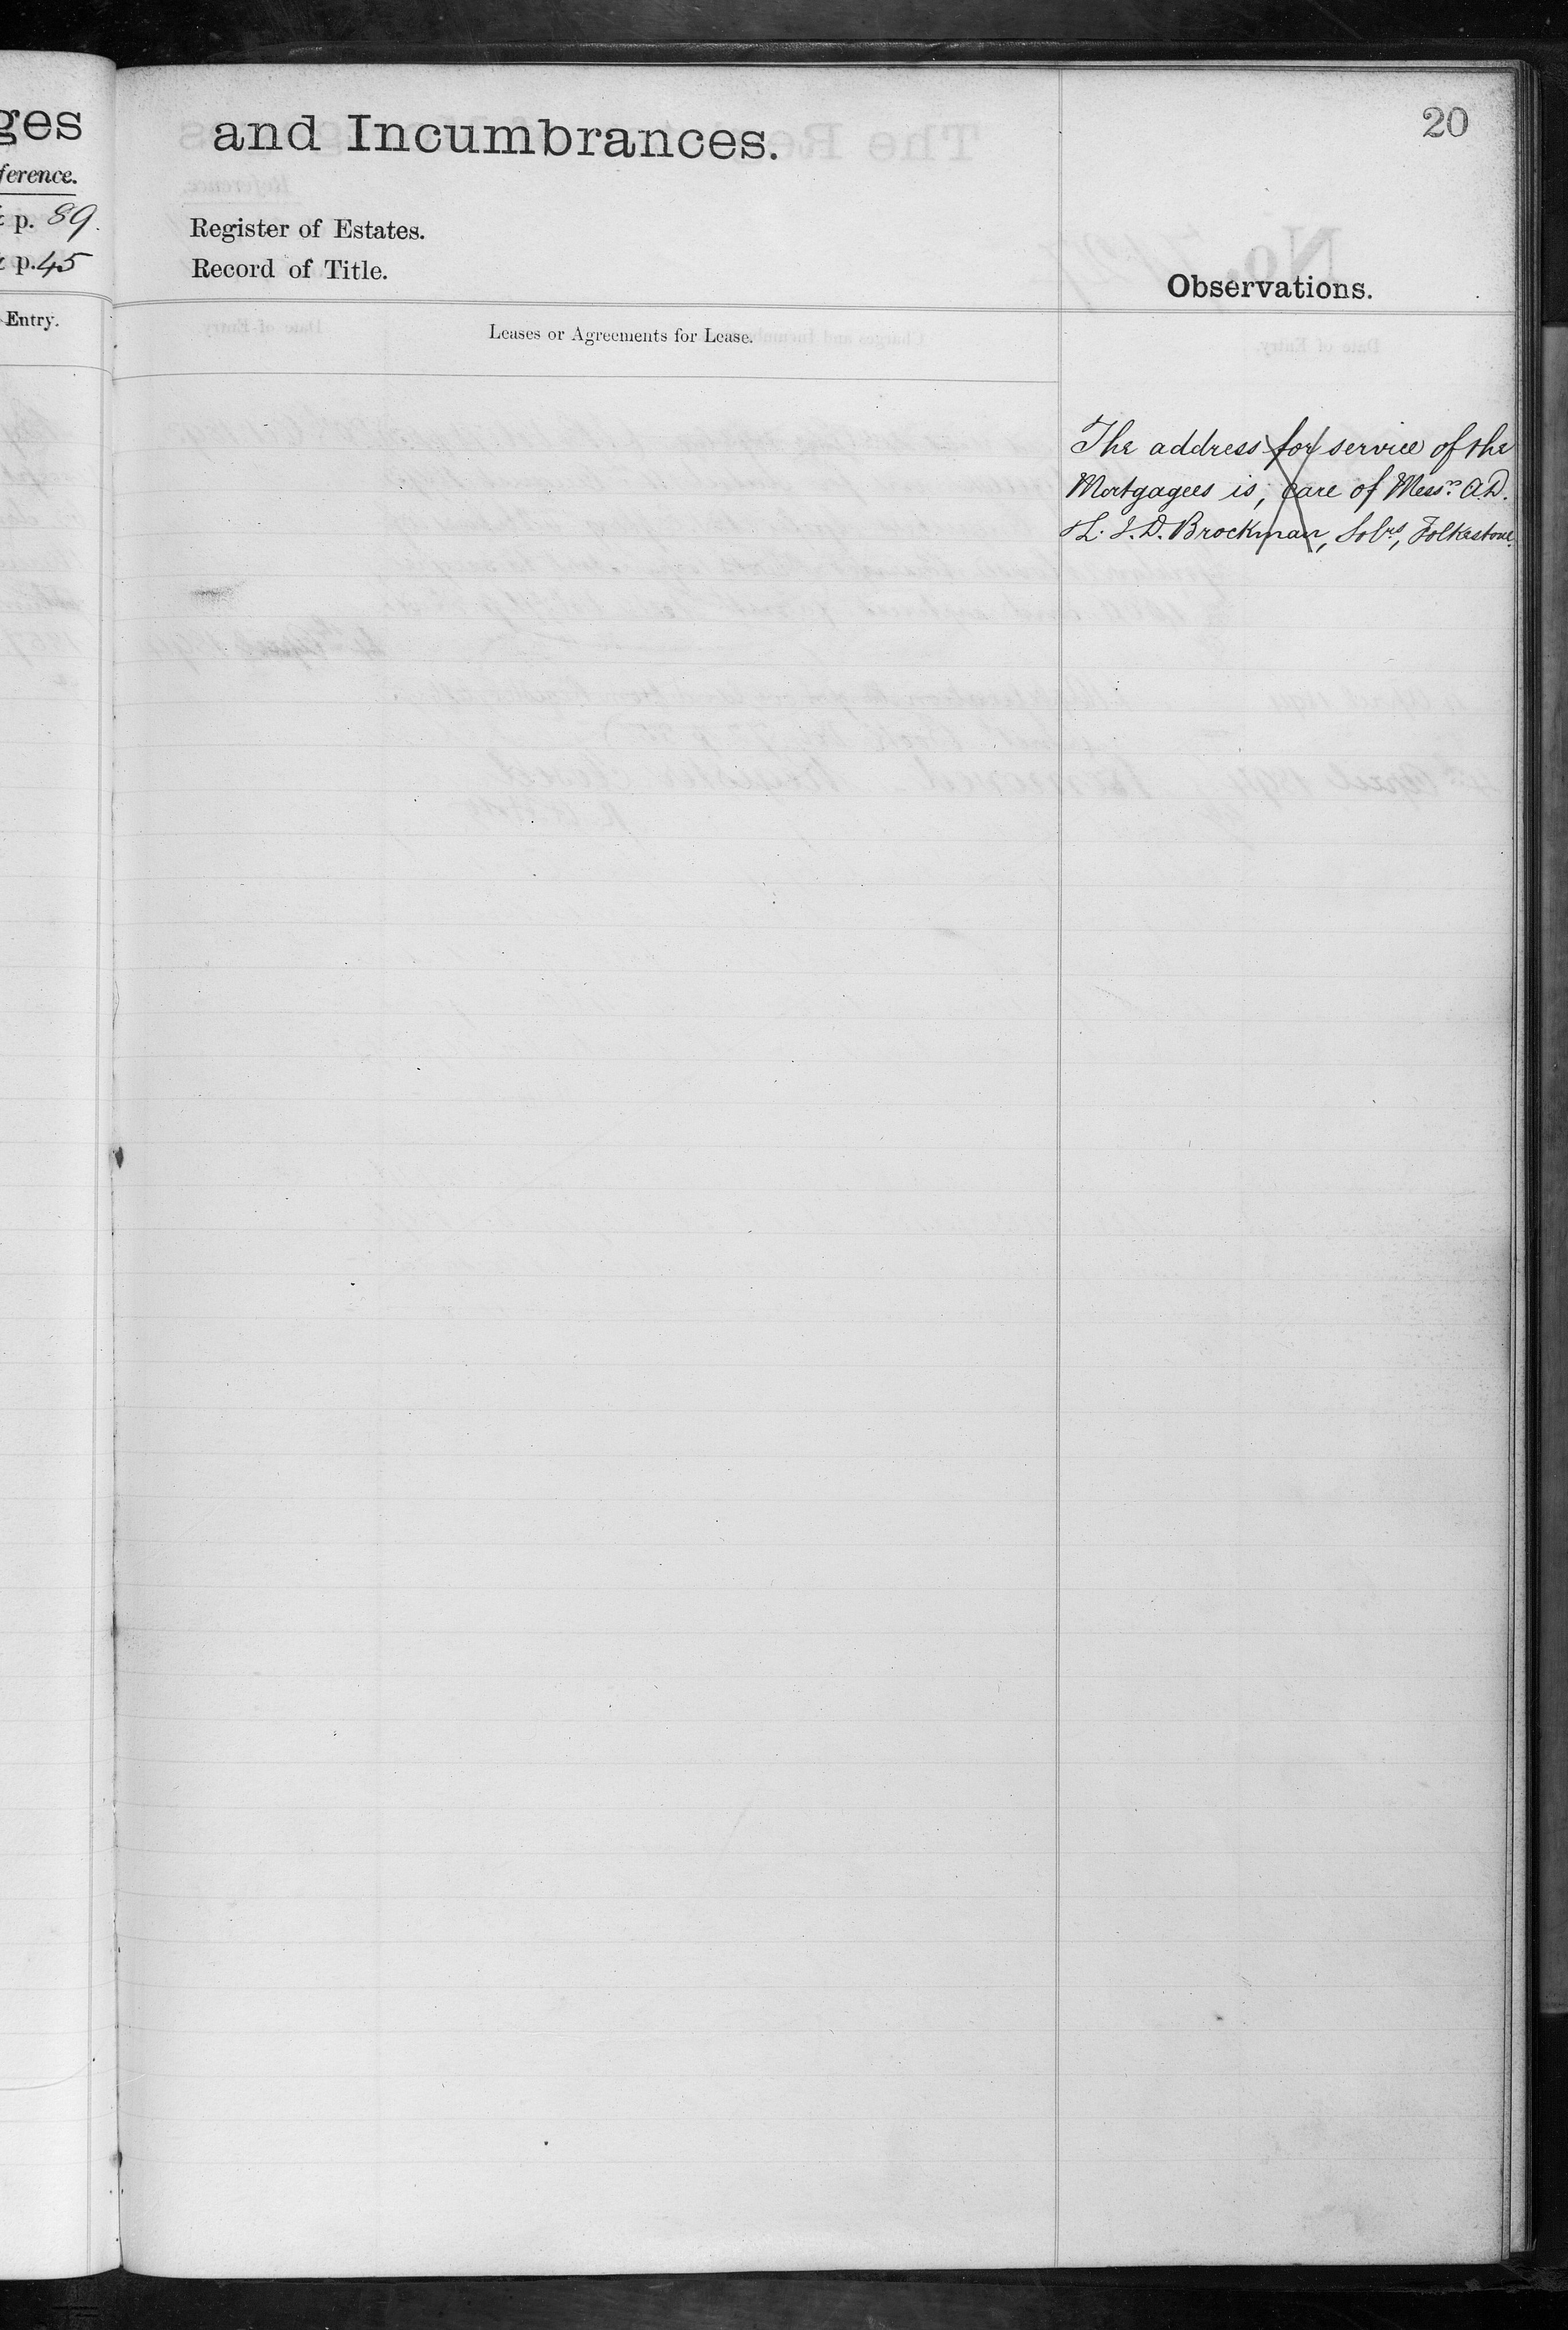 ges
ference.
p. 89.
p. 45
Entry.
and Incumbrances.
20
Register of Estates.
Record of Title.
Observations.
Leases or Agreements for Lease.
The address for service of the
Mortgagees is, Care of Messrs. A.D.
L. J. D. Brockman, Solrs, Folkestone.